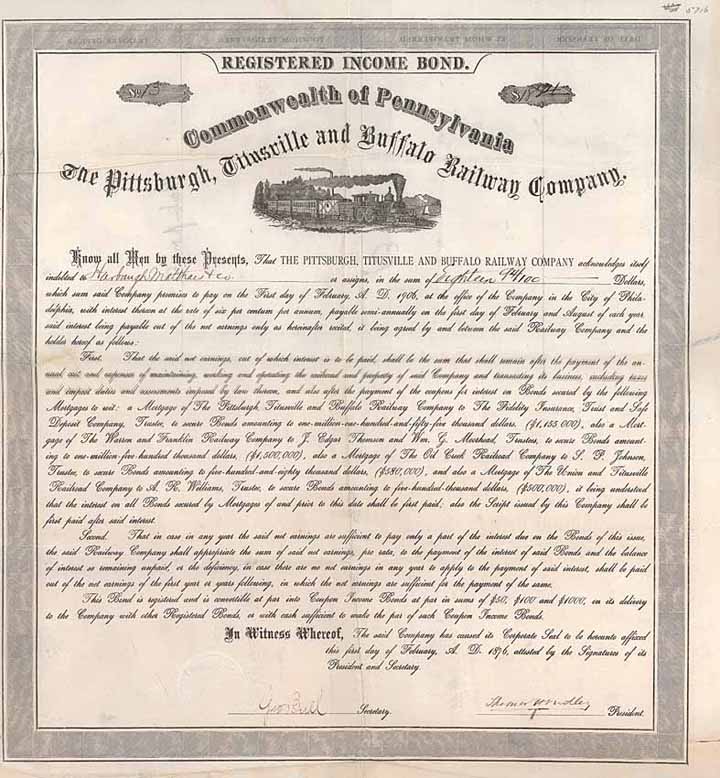 5716
DATE OF TRANSFER. BY WHOM TRANSFERRED. TO WHOM TRANSFERRED. TRANSFER OFFICER.
REGISTERED INCOME BOND.
No. 13
$18 94/100
Commonwealth of Pennsylvania
The Pittsburgh, Titusville and Buffalo Railway Company.
Know all Men by these Presents, That THE PITTSBURGH, TITUSVILLE AND BUFFALO RAILWAY COMPANY acknowledges itself
indebted to Harbaugh Mathias & Co. or assigns, in the sum of Eighteen 94/100 Dollars,
which sum said Company promises to pay on the First day of February, A. D. 1906, at the office of the Company in the City of Phila-
delphia, with interest thereon at the rate of six per centum per annum, payable semi-annually on the first day of February and August of each year
said interest being payable out of the net earnings only as hereinafter recited, it being agreed by and between the said Railway Company and the
holder hereof as follows:
First. That the said net earnings, out of which interest is to be paid, shall be the sum that shall remain after the payment of the an-
nual cost and expenses of maintaining, working and operating the railroad and property of said Company and transacting its business, including taxes
and impost duties and assessments imposed by law thereon, and also after the payment of the coupons for interest on Bonds secured by the following
Mortgages to wit: a Mortgage of The Pittsburgh, Titusville and Buffalo Railway Company to The Fidelity Insurance, Trust and Safe
Deposit Company, Trustee, to secure Bonds amounting to one-million-one-hundred-and-fifty-five thousand dollars, ($1,155,000), also a Mort-
gage of The Warren and Franklin Railway Company to J. Edgar Thomson and Wm. G. Moorhead, Trustees, to secure Bonds amount-
ing to one-million-five-hundred thousand dollars, ($1,500,000), also a Mortgage of The Oil Creek Railroad Company to S. P. Johnson,
Trustee, to secure Bonds amounting to five-hundred-and-eighty thousand dollars, ($580,000), and also a Mortgage of The Union and Titusville
Railroad Company to A. R. Williams, Trustee, to secure Bonds amounting to five-hundred-thousand dollars, ($500,000), it being understood
that the interest on all Bonds secured by Mortgages of and prior to this date shall be first paid; also the Script issued by this Company shall be
first paid after said interest.
Second. That in case in any year the said net earnings are sufficient to pay only a part of the interest due on the Bonds of this issue,
the said Railway Company shall appropriate the sum of said net earnings, pro rata, to the payment of the interest of said Bonds and the balance
of interest so remaining unpaid, or the deficiency, in case there are no net earnings in any year to apply to the payment of said interest, shall be paid
out of the net earnings of the first year or years following, in which the net earnings are sufficient for the payment of the same.
This Bond is registered and is convertible at par into Coupon Income Bonds at par in sums of $50, $100 and $1000, on its delivery
to the Company with other Registered Bonds, or with cash sufficient to make the par of such Coupon Income Bonds.
In Witness Whereof, The said Company has caused its Corporate Seal to be hereunto affixed
this first day of February, A. D. 1876, attested by the Signatures of its
President and Secretary.
Secretary. President.